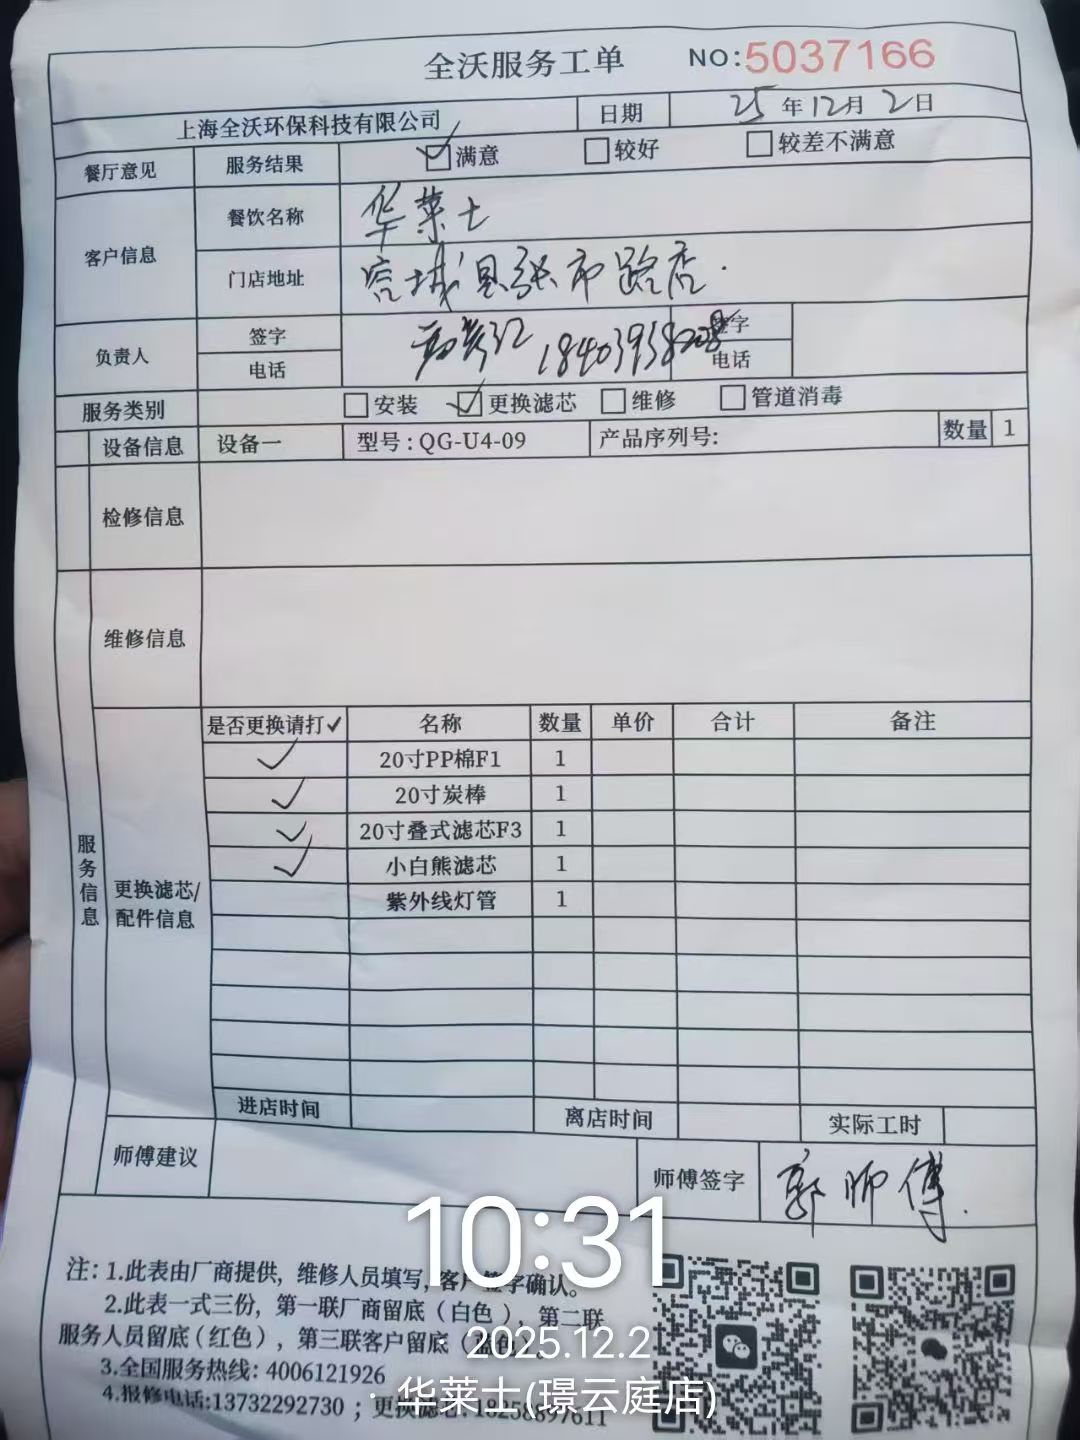 全沃服务工单 NO:5037166
上海全沃环保科技有限公司 日期 25年12月2日
餐厅意见 服务结果 满意 较好 较差不满意
客户信息 餐饮名称 华莱士
门店地址 容城县张市路店.
负责人 签字 签字
电话 电话
服务类别 安装 更换滤芯 维修 管道消毒
设备信息 设备一 型号:QG-U4-09 产品序列号: 数量 1
检修信息
维修信息
服务信息
更换滤芯/配件信息
是否更换请打✓ 名称 数量 单价 合计 备注
✓ 20寸PP棉F1 1
✓ 20寸炭棒 1
✓ 20寸叠式滤芯F3 1
✓ 小白熊滤芯 1
紫外线灯管 1
进店时间 离店时间 实际工时
师傅建议 师傅签字 郭师傅.
10:31
注:1.此表由厂商提供,维修人员填写,客户签字确认。
2.此表一式三份,第一联厂商留底(白色),第二联
服务人员留底(红色),第三联客户留底
2025.12.2
3.全国服务热线:4006121926
4.报修电话:13732292730;更换滤芯:
华莱士(璟云庭店)